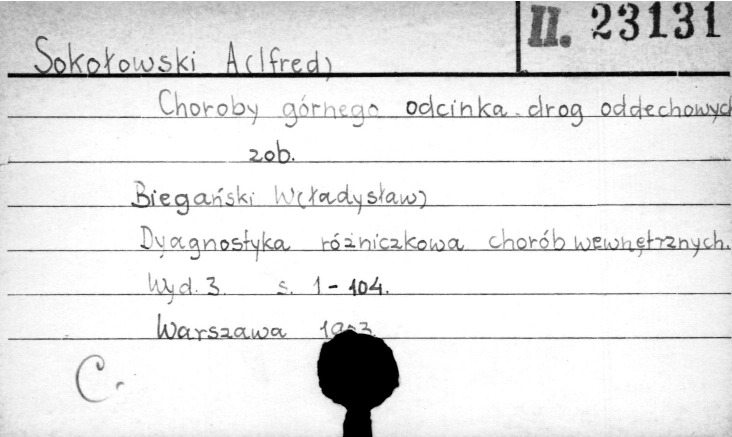 II. 23131
Sokołowski A(lfred)
Choroby górnego odcinka drog oddechowych
zob.
Biegański W(ładysław)
Dyagnostyka różniczkowa chorób wewnętrznych.
Wyd. 3. s. 1-104.
Warszawa
C.